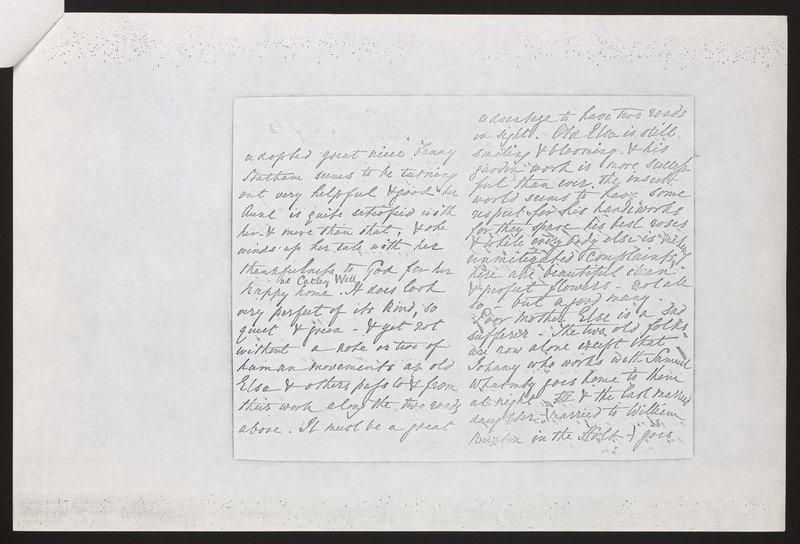 adopted great niece Fanny
Statham seems to be turning
out very helpful & good her
Aunt is quite satisfied with
her & more than that, & she
winds up her tale with her
thankfulness to God for her
at Catley Well
happy home. It does look
very perfect of its kind, so
quiet & green - & yet not
without a note or two of
human movements as old
Else & others pass to & from
their work along the two roads
above. It must be a great
advantage to have two roads
in sight. Old Else is still
smiling & blooming & his
garden work is more success
ful than ever. The insect
world seems to have some
respect for his handiworks
for they spare his best roses
& while every body else is
unmitigated complaints
here are beautiful clean
& perfect flowers - not all
so - but a good many.
Poor Mother Else is a sad
sufferer - The two old folks
are now alone except that
Johnny who works with Samuel
goes home to them
at night & the last married
daughter (married to William
Buxton in the Holt) goes